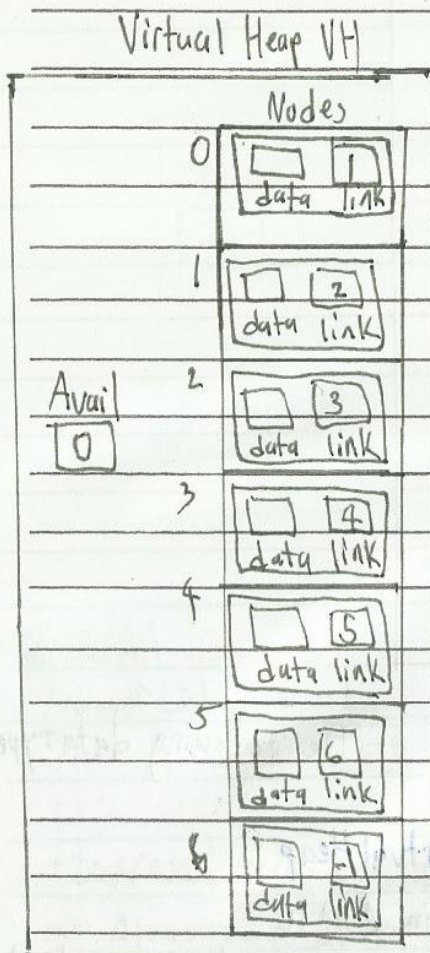 Virtual Heap VH
Nodes
0
1
data link
1
2
data link
Avail
0
2
3
data link
3
4
data link
4
5
data link
5
6
data link
6
-1
data link